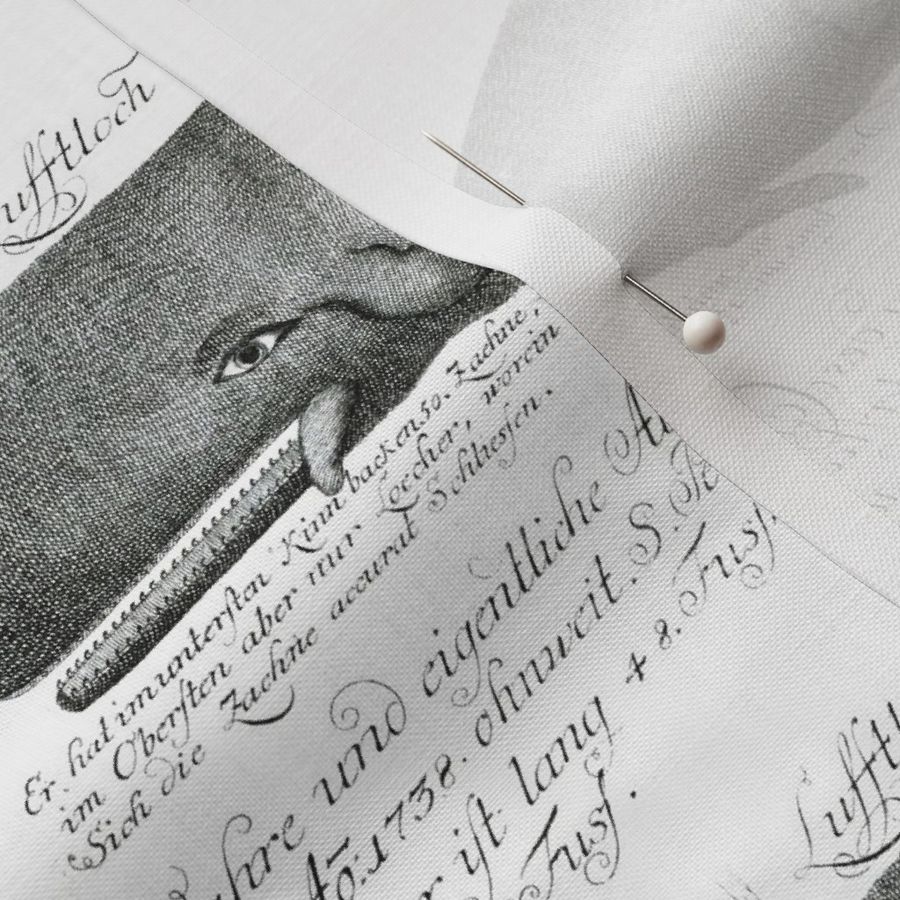 ufftloch
Er. hat im untersten Kinn backen 50. Zaehne,
im Obersten aber nur Loecher, worein
Sich die Zaehne accurat Schliessen.
ahre und eigentliche
Aō: 1738. ohnweit. S. Pe
r ist lang 48. Fuss.
Fuss.
Lufft